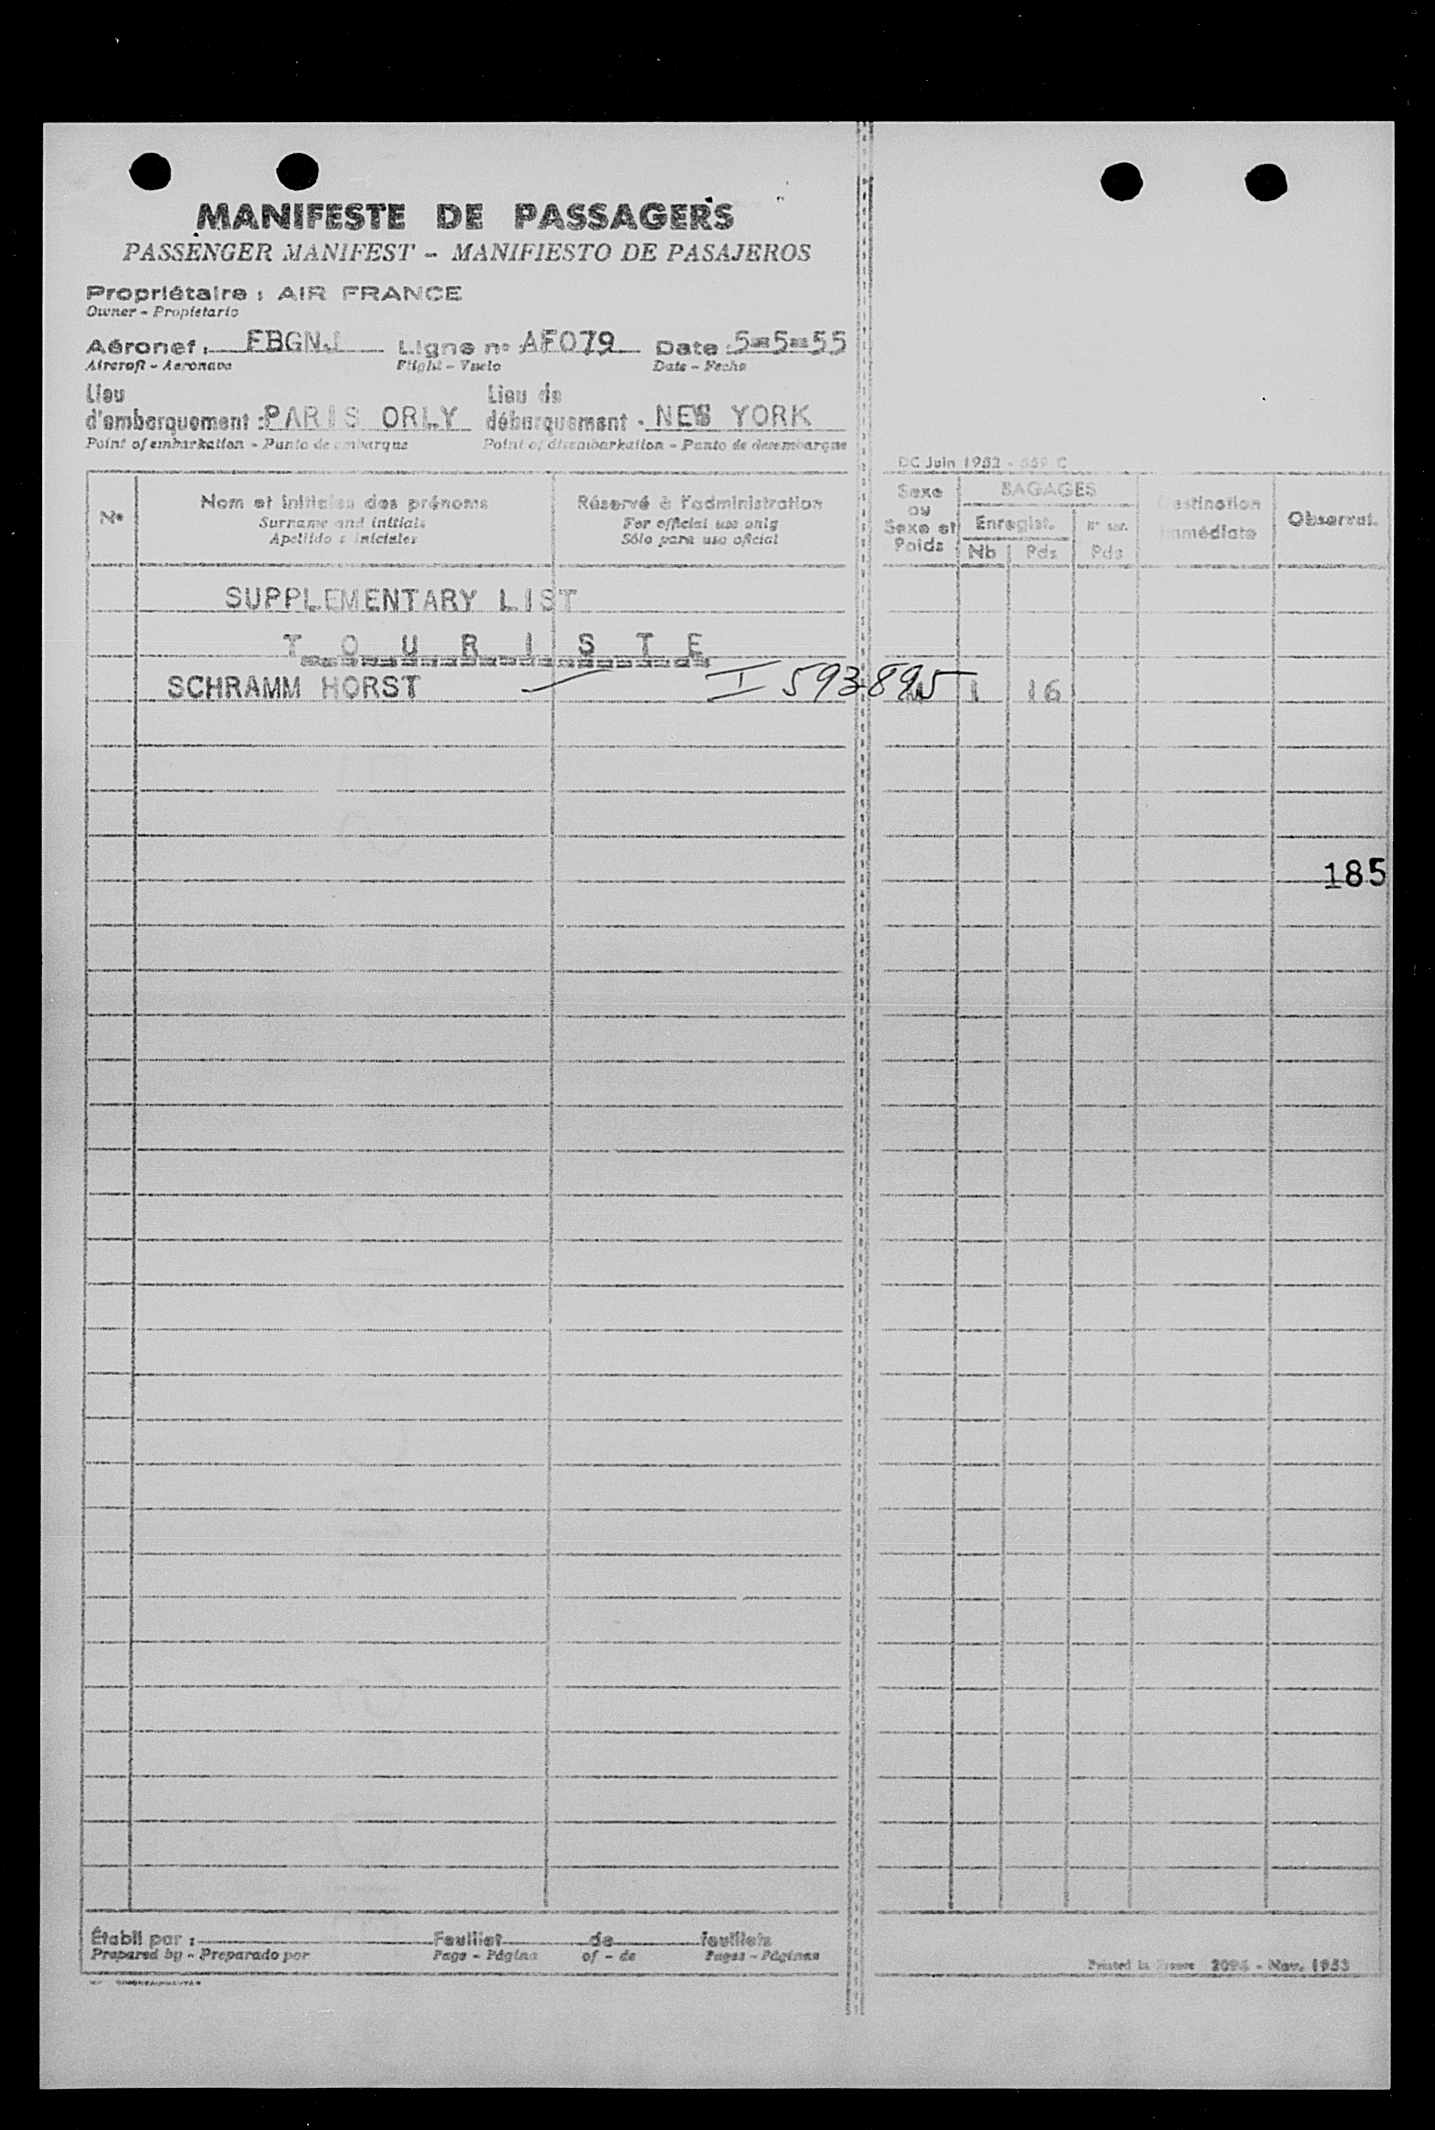 MANIFESTE DE PASSAGERS
PASSENGER MANIFEST - MANIFIESTO DE PASAJEROS
Propriétaire : AIR FRANCE
Owner - Propietario
Aéronef : FBGNJ Ligne n° AF079 Date : 5-5-55
Aircraft - Aeronave Flight - Vuelo Date - Fecha
Lieu d'embarquement : PARIS ORLY Lieu de débarquement - NEW YORK
Point of embarkation - Punto de embarque Point of disembarkation - Punto de desembarque
DC Juin 1952 - 559 C
N° Nom et initiales des prénoms Réservé à l'administration Sexe ou Sexe et Poids BAGAGES Destination immédiate Observat.
Surname and initials For official use only Enregist.
Apellido e iniciales Sólo para uso oficial Nb Pds Pds
SUPPLEMENTARY LIST
T O U R I S T E
SCHRAMM HORST I 593895 M 1 16
185
Établi par : Feuillet de feuillets
Prepared by - Preparado por Page - Página of - de Pages - Páginas
Printed in France - Nov. 1953